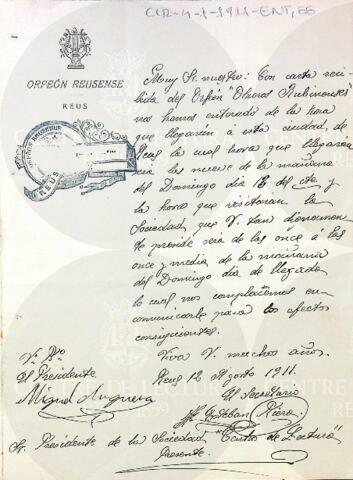 CLR-4-1-1911-ENT, 66
ORFEÓN REUSENSE
REUS
Muy Sr. nuestro: Con carta reci
bida del Orfeón "Ecos Rubinenses"
nos hemos enterado de la hora
que llegarán á esta ciudad, de
la cual hora que llegarán
las nueve de la mañana
del Domingo dia 13 del cte. y
la hora que visitarán la
Sociedad, que V. tan dignamen
te preside será de las once á las
once y media de la mañana
del Domingo dia de llegada
lo cual nos complacemos en
comunicarle para los efectos
consiguientes.
Viva V. muchos años.
Reus 12 Agosto 1911.
Vº. Bº.
El Presidente
Miguel
El Secretario
Esteban Riera
Sr. Presidente de la Sociedad "Centro de Lectura"
Presente.
ORFEÓN REUSENSE
REUS
CENTRE DE LECTURA
1859